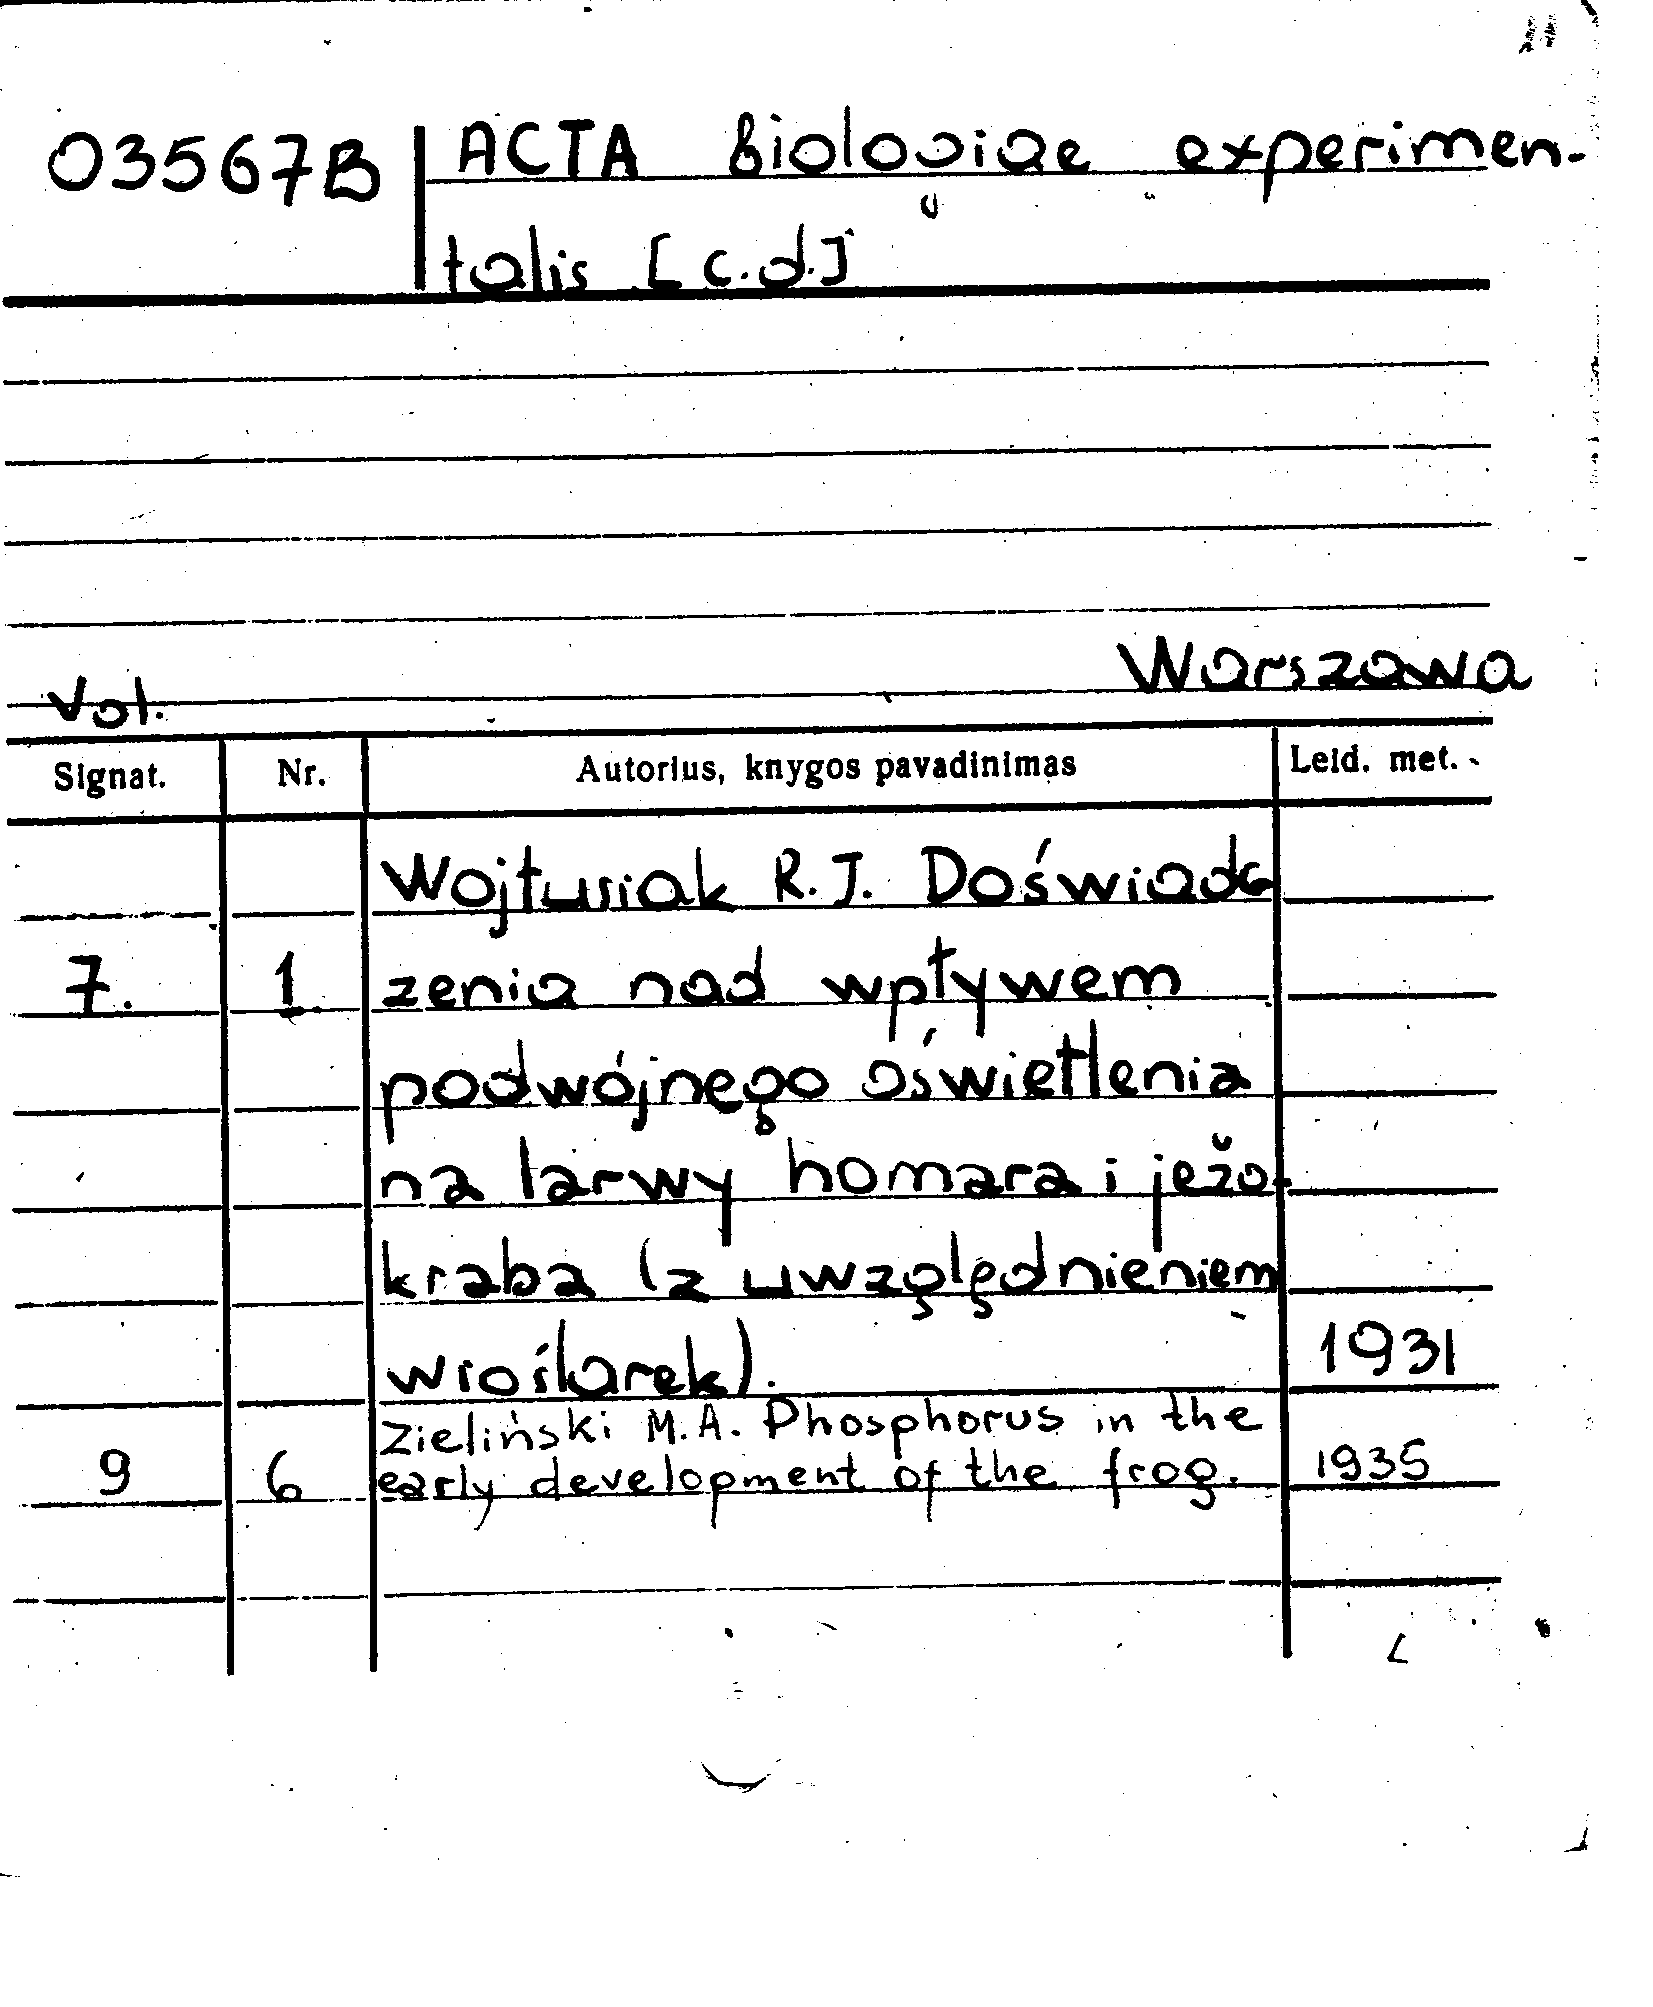 11
03567B ACTA Biologiae experimen-
talis [c.d.]
Warszawa
Vol.
Signat. Nr. Autorius, knygos pavadinimas Leid. met.
Wojtusiak R.J. Doświadc
7. 1 zenia nad wpływem
podwójnego oświetlenia
na larwy homara i ježo-
kraba (z uwzględnieniem
wioślarek). 1931
Zieliński M.A. Phosphorus in the
9 6 early development of the frog. 1935